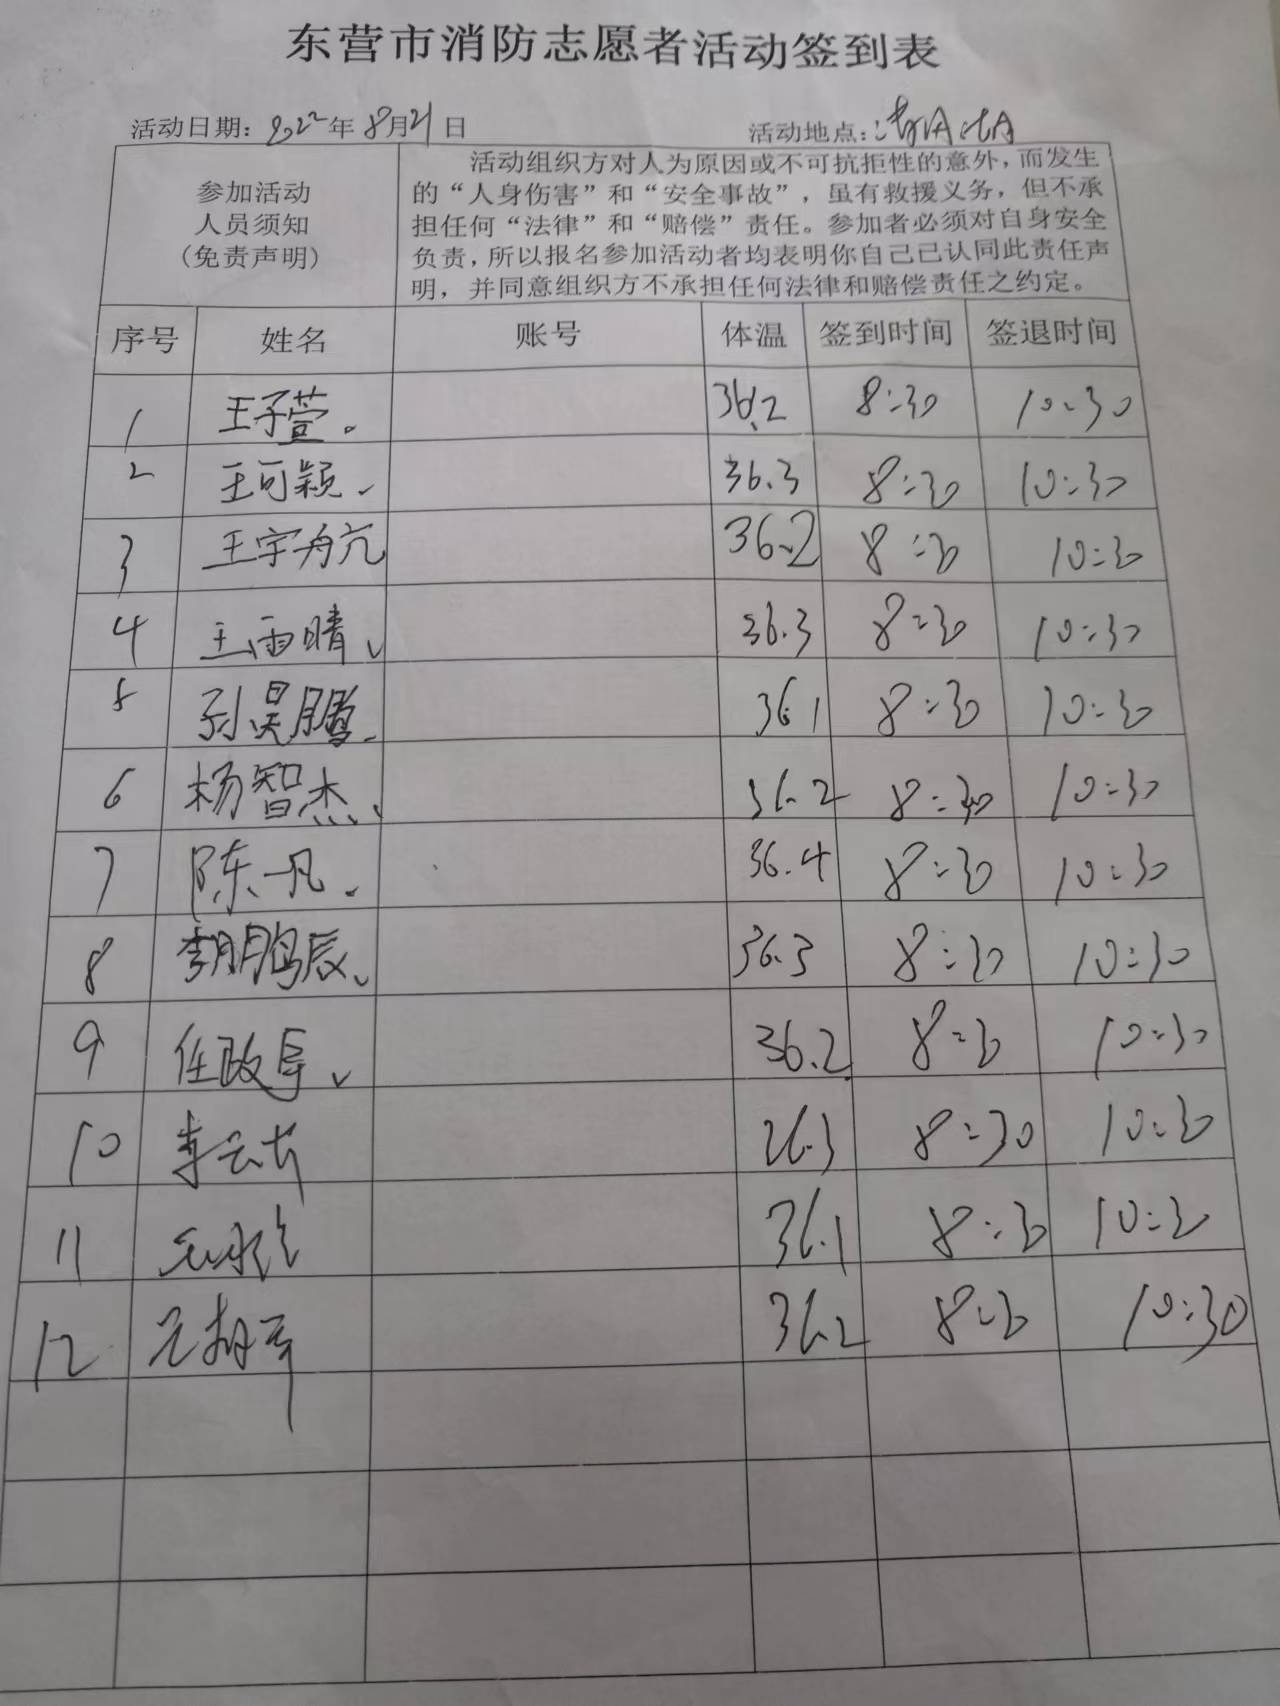 东营市消防志愿者活动签到表
活动日期：2022年8月21日 活动地点：
参加活动
人员须知
（免责声明）
活动组织方对人为原因或不可抗拒性的意外，而发生
的“人身伤害”和“安全事故”，虽有救援义务，但不承
担任何“法律”和“赔偿”责任。参加者必须对自身安全
负责，所以报名参加活动者均表明你自己已认同此责任声
明，并同意组织方不承担任何法律和赔偿责任之约定。
序号 姓名 账号 体温 签到时间 签退时间
1 王子萱 36.2 8:30 10:30
2 王可颖 36.3 8:30 10:30
3 王宇 36.2 8:30 10:30
4 王雨晴 36.3 8:30 10:30
5 孙昊鹏 36.1 8:30 10:30
6 杨智杰 36.2 8:30 10:30
7 陈一凡 36.4 8:30 10:30
8 鹏辰 36.3 8:30 10:30
9 任政 36.2 8:30 10:30
10 李云 36.3 8:30 10:30
11 36.1 8:30 10:30
12 36.2 8:30 10:30